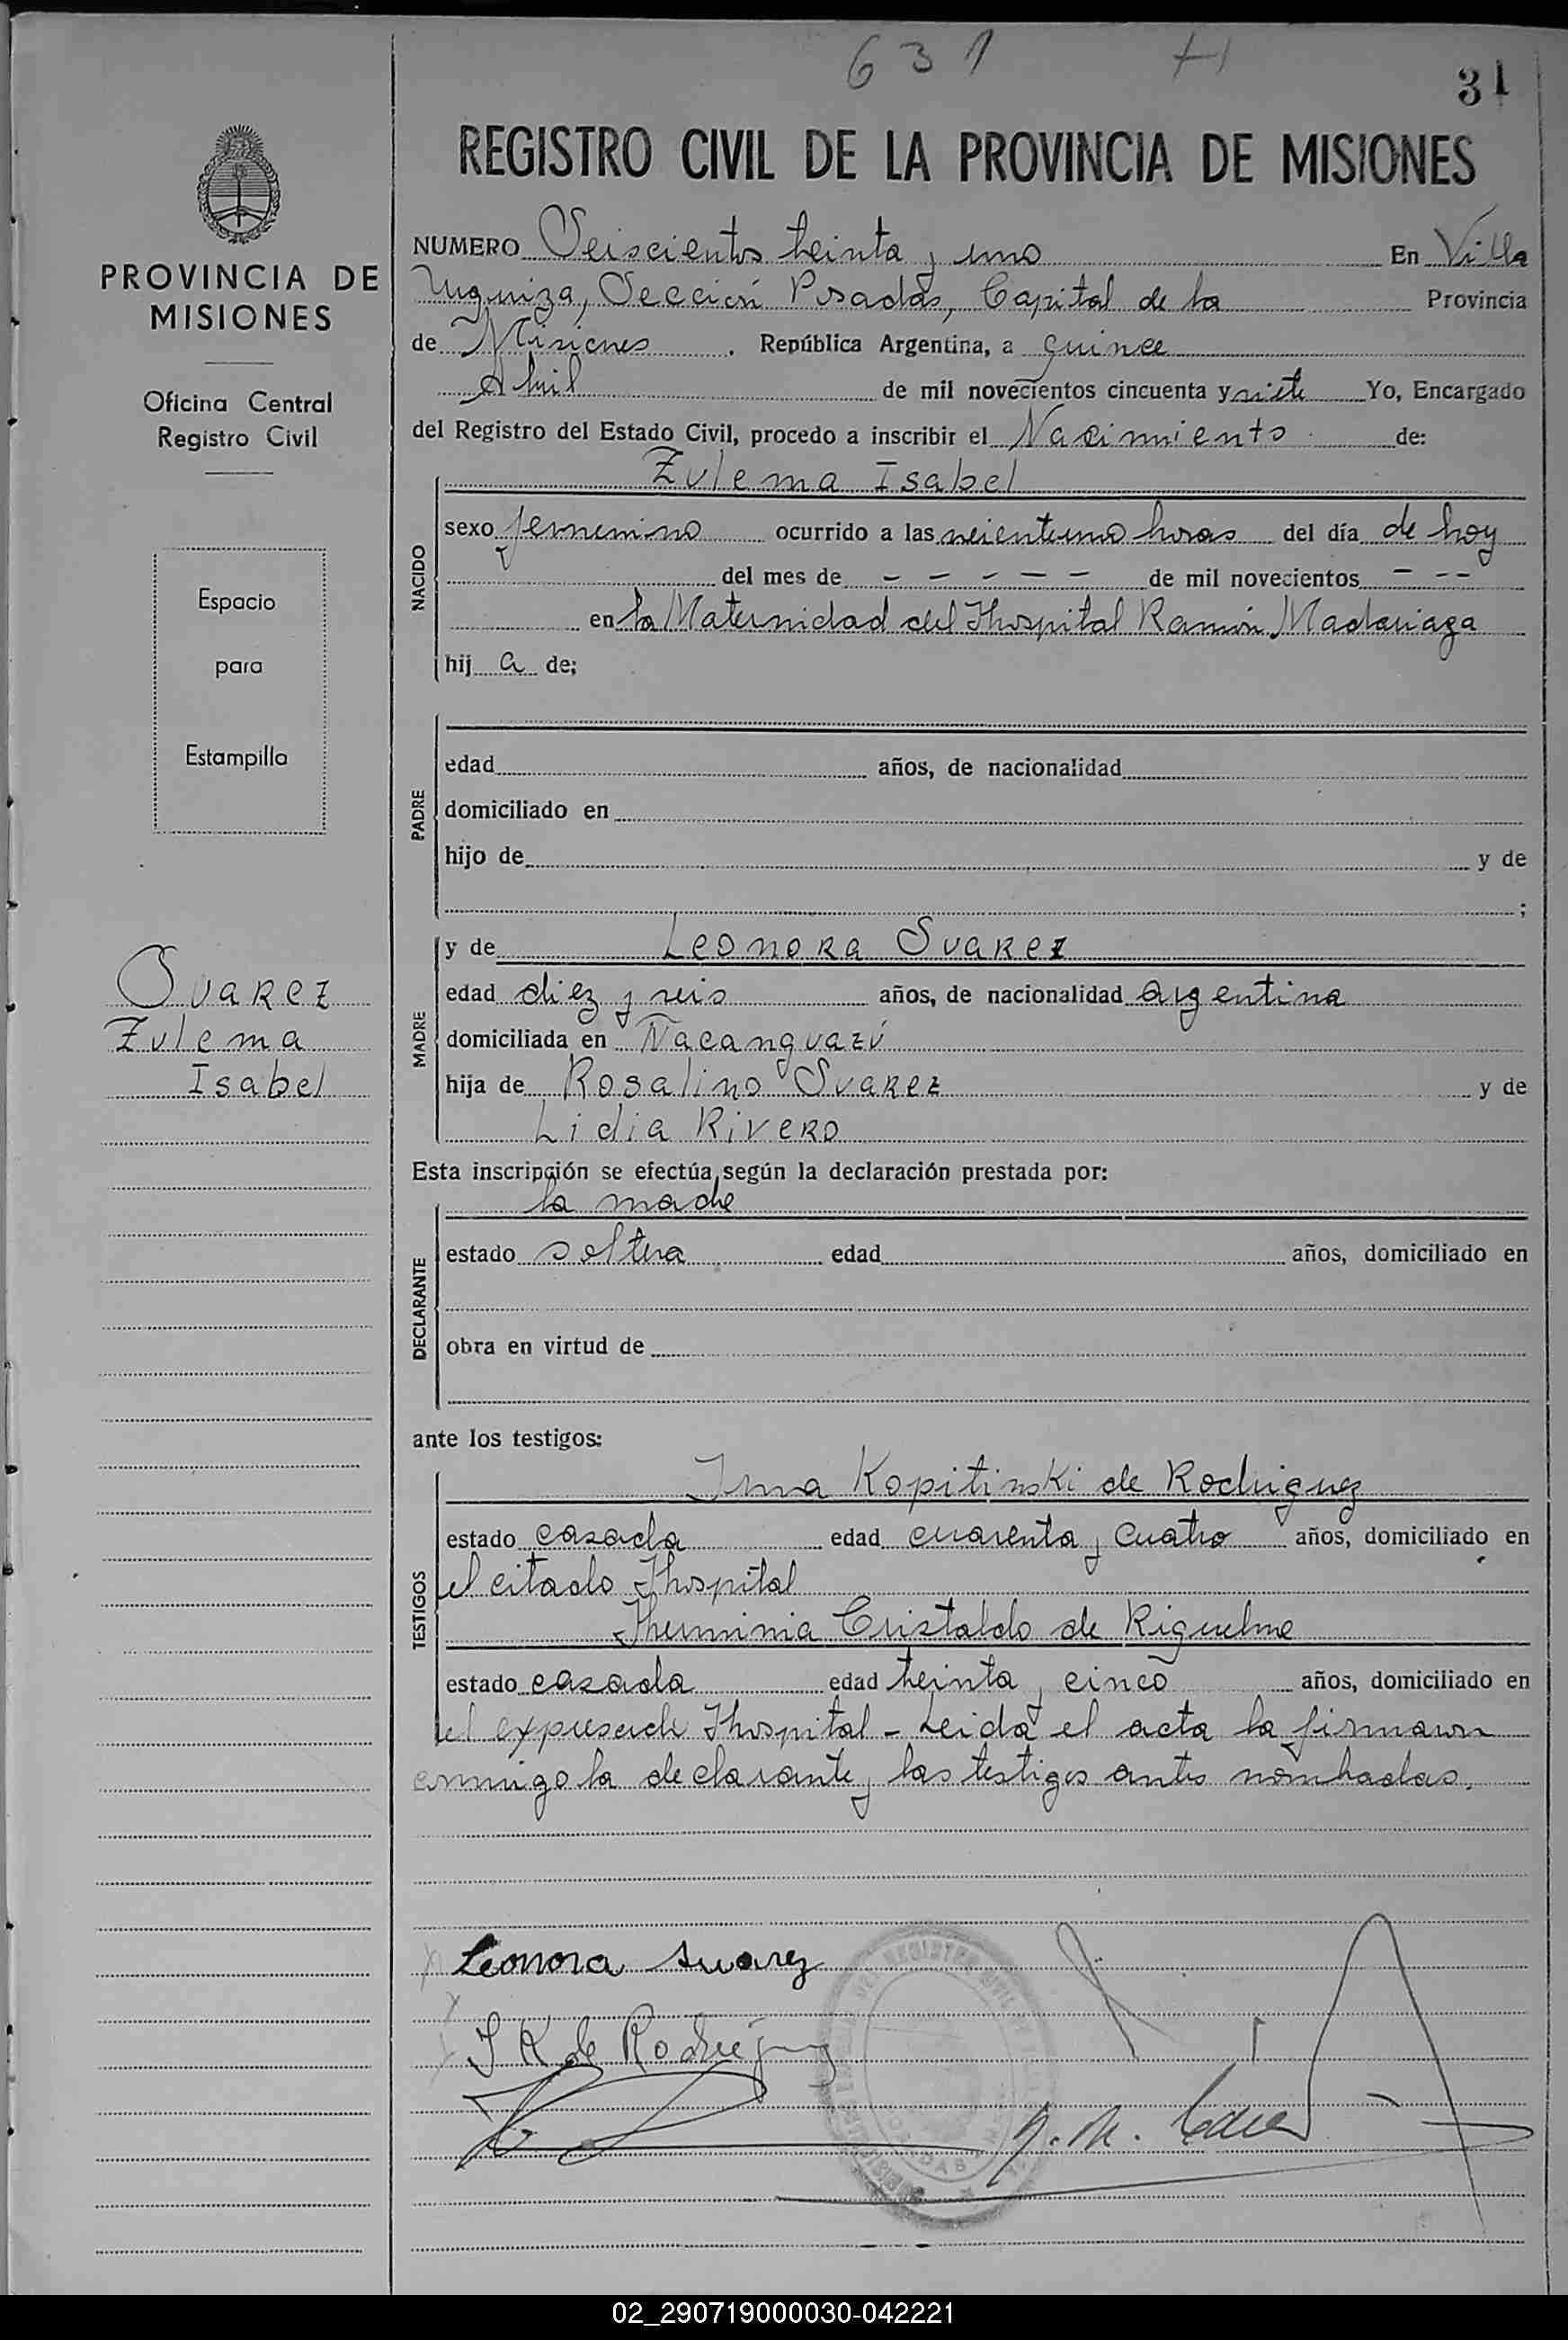 631
31
REGISTRO CIVIL DE LA PROVINCIA DE MISIONES
PROVINCIA DE
MISIONES
Oficina Central
Registro Civil
Espacio
para
Estampilla
Suarez
Zulema
Isabel
NUMERO Seiscientos treinta y uno En Villa
Urquiza, Sección Posadas, Capital de la Provincia
de Misiones. República Argentina, a quince
Abril de mil novecientos cincuenta y siete Yo, Encargado
del Registro del Estado Civil, procedo a inscribir el Nacimiento de:
NACIDO
Zulema Isabel
sexo femenino ocurrido a las horas del día de hoy
del mes de - - - - - de mil novecientos - - -
en la Maternidad del Hospital Ramón Madariaga
hij a de;
PADRE
edad años, de nacionalidad
domiciliado en
hijo de y de
;
MADRE
y de Leonora Suarez
edad diez y seis años, de nacionalidad argentina
domiciliada en Ñacanguazú
hija de Rosalino Suarez y de
Lidia Rivero
Esta inscripción se efectúa según la declaración prestada por:
DECLARANTE
la madre
estado soltera edad años, domiciliado en
obra en virtud de
ante los testigos:
TESTIGOS
Irma Kopitinski de Rodriguez
estado casada edad cuarenta y cuatro años, domiciliado en
el citado Hospital
Herminia Cristaldo de Riquelme
estado casada edad treinta y cinco años, domiciliado en
el expresado Hospital - Leida el acta la firmaron
conmigo la declarante y las testigos antes nombradas.
Leonora Suarez
I K de Rodriguez
02_290719000030-042221